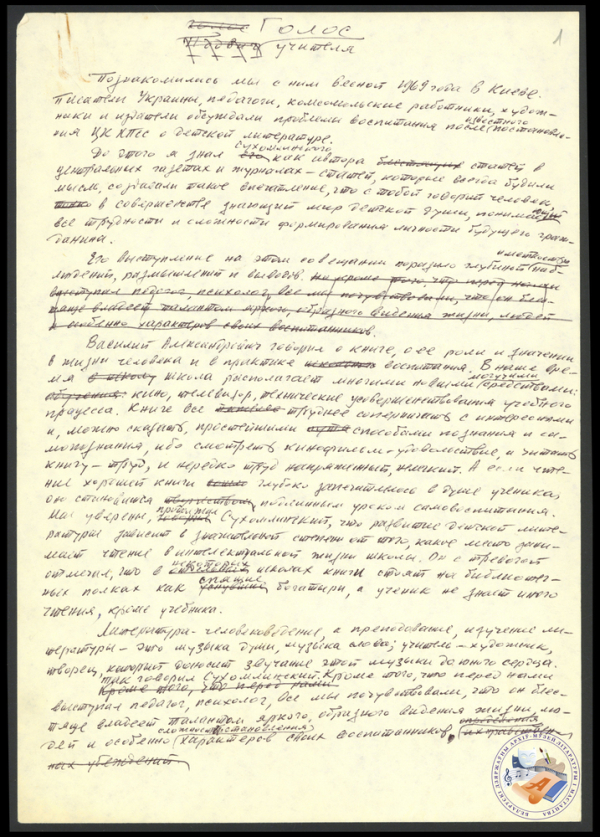 Голос
учителя
1
Познакомились мы с ним весной 1969 года в Киеве.
Писатели Украины, педагоги, комсомольские работники, худож-
ники и издатели обсуждали проблемы воспитания после известного постановле-
ния ЦК КПСС о детской литературе.
До этого я знал Сухомлинского как автора блестящих статей в
центральных газетах и журналах – статей, которые всегда будили
мысль, создавали такое впечатление, что с тобой говорит человек,
в совершенстве знающий мир детской души, понимающий
все трудности и сложности формирования личности будущего граж-
данина.
Его выступление на этом совещании поразило глубиной наб-
людений, размышлений и выводов. Но кроме того, что перед нами
выступал педагог, психолог, все мы почувствовали, что он блес-
тяще владеет талантом яркого, образного видения жизни, людей
и особенно характеров своих воспитанников.
Василий Александрович говорил о книге, о ее роли и значении
в жизни человека и в практике воспитания. В наше вре-
мя школа располагает многими новыми могучими средствами:
кино, телевизор, технические усовершенствования учебного
процесса. Книге все труднее соперничать с интересными
и, можно сказать, простейшими способами познания и са-
мопознания, ибо смотреть кинофильм – удовольствие, а читать
книгу – труд, и нередко труд напряженный, нелегкий. А если чте-
ние хорошей книги глубоко запечатлелось в душе ученика,
он становится подлинным уроком самовоспитания.
Мы уверены, продолжал Сухомлинский, что развитие детской лите-
ратуры зависит в значительной степени от того, какое место зани-
мает чтение в интеллектуальной жизни школы. Он с тревогой
отмечал, что в некоторых школах книги стоят на библиотеч-
ных полках как спящие богатыри, а ученик не знает иного
чтения, кроме учебника.
Литература – человековедение, а преподавание, изучение ли-
тературы – это музыка души, музыка слова; учитель – художник,
творец, который доносит звучание этой музыки до юного сердца.
Так говорил Сухомлинский. Кроме того, что перед нами
Кроме того, что перед нами
выступал педагог, психолог, все мы почувствовали, что он блес-
тяще владеет талантом яркого, образного видения жизни, лю-
дей и особенно сложности становления характеров своих воспитанников, их нравствен-
ных убеждений
БЕЛАРУСКІ ДЗЯРЖАЎНЫ АРХІЎ-МУЗЕЙ ЛІТАРАТУРЫ І МАСТАЦТВА